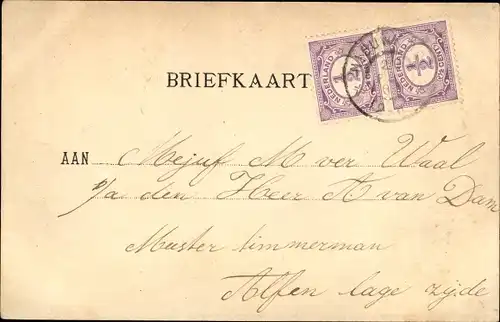 NEDERLAND
½
NEDERLAND
½
BRIEFKAART
AAN Mejuf M ver Waal
p/a den Heer A van Dam
Meester timmerman
Alfen lage zijde